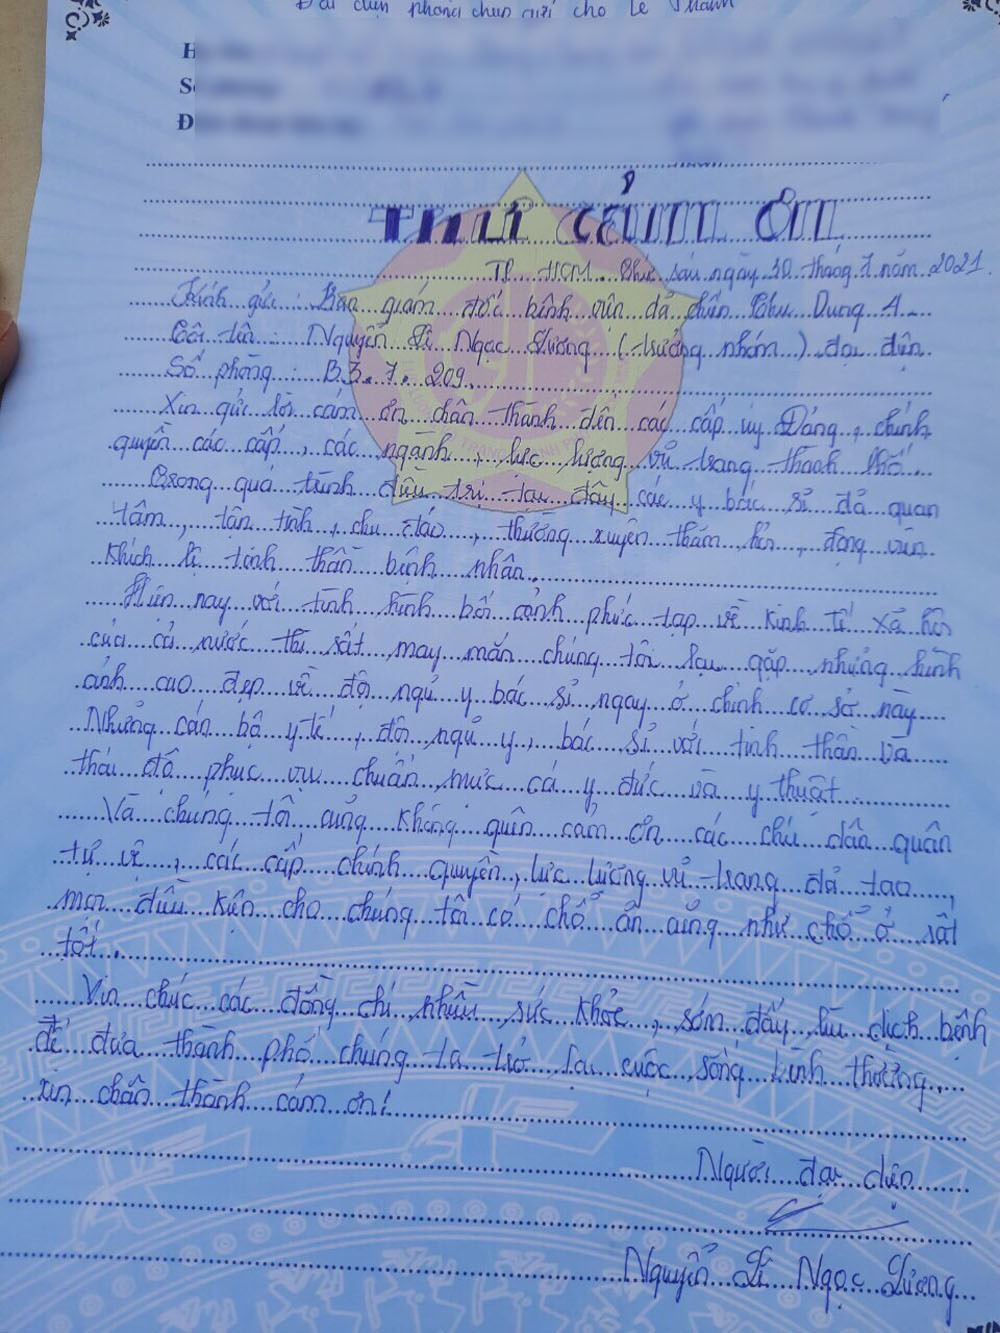 Đại diện phòng chụp gửi cho Lê Thanh
H
S
Đ
THƯ CẢM ƠN
TP HCM thứ sáu ngày 30 tháng 7 năm 2021
Kính gửi : Ban giám đốc bệnh viện dã chiến Thu Dung 4
Tôi tên : Nguyễn Lê Ngọc (trưởng nhóm) đại diện
Số phòng : B3.7.209
Xin gửi lời cảm ơn chân thành đến các cấp ủy Đảng, chính
quyền các cấp, các ngành, lực lượng vũ trang thành phố
Trong quá trình điều trị tại đây các y bác sĩ đã quan
tâm, tận tình, chu đáo, thường xuyên thăm hỏi, động viên
khích lệ tinh thần bệnh nhân.
Hiện nay với tình hình bối cảnh phức tạp về kinh tế xã hội
của cả nước thì rất may mắn chúng tôi lại gặp những hình
ảnh cao đẹp về đội ngủ y bác sĩ ngay ở chính cơ sở này
Những cán bộ y tế, đội ngủ y, bác sĩ với tinh thần và
thái độ phục vụ chuẩn mực cả y đức và y thuật
Và chúng tôi củng không quên cảm ơn các chú dân quân
tự vệ, các cấp chính quyền, lực lượng vũ trang đã tạo
mọi điều kiện cho chúng tôi có chổ ăn củng như chổ ở rất
tốt.
Xin chúc các đồng chí nhiều sức khỏe, sớm đẩy lùi dịch bệnh
để đưa thành phố chúng ta trở lại cuộc sống bình thường
xin chân thành cám ơn!
Người đại diện
Nguyễn Lê Ngọc